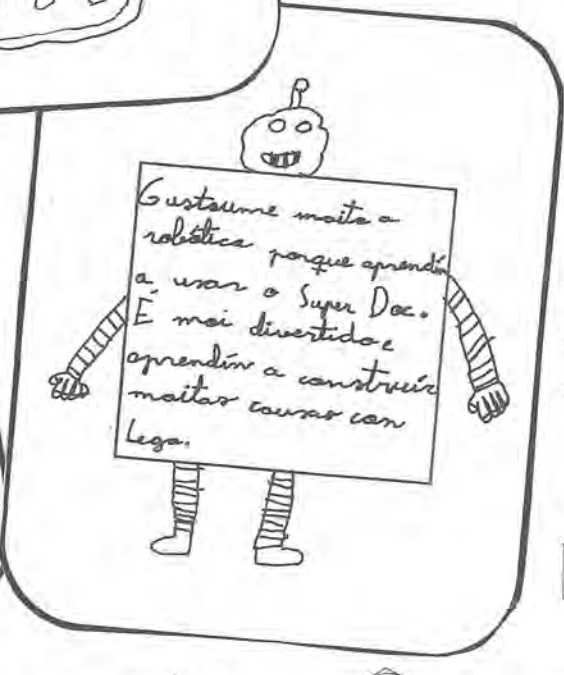 Gustoume moito a
robótica porque aprendín
a usar o Super Doc.
É moi divertido e
aprendín a construír
moitas cousas con
Lego.